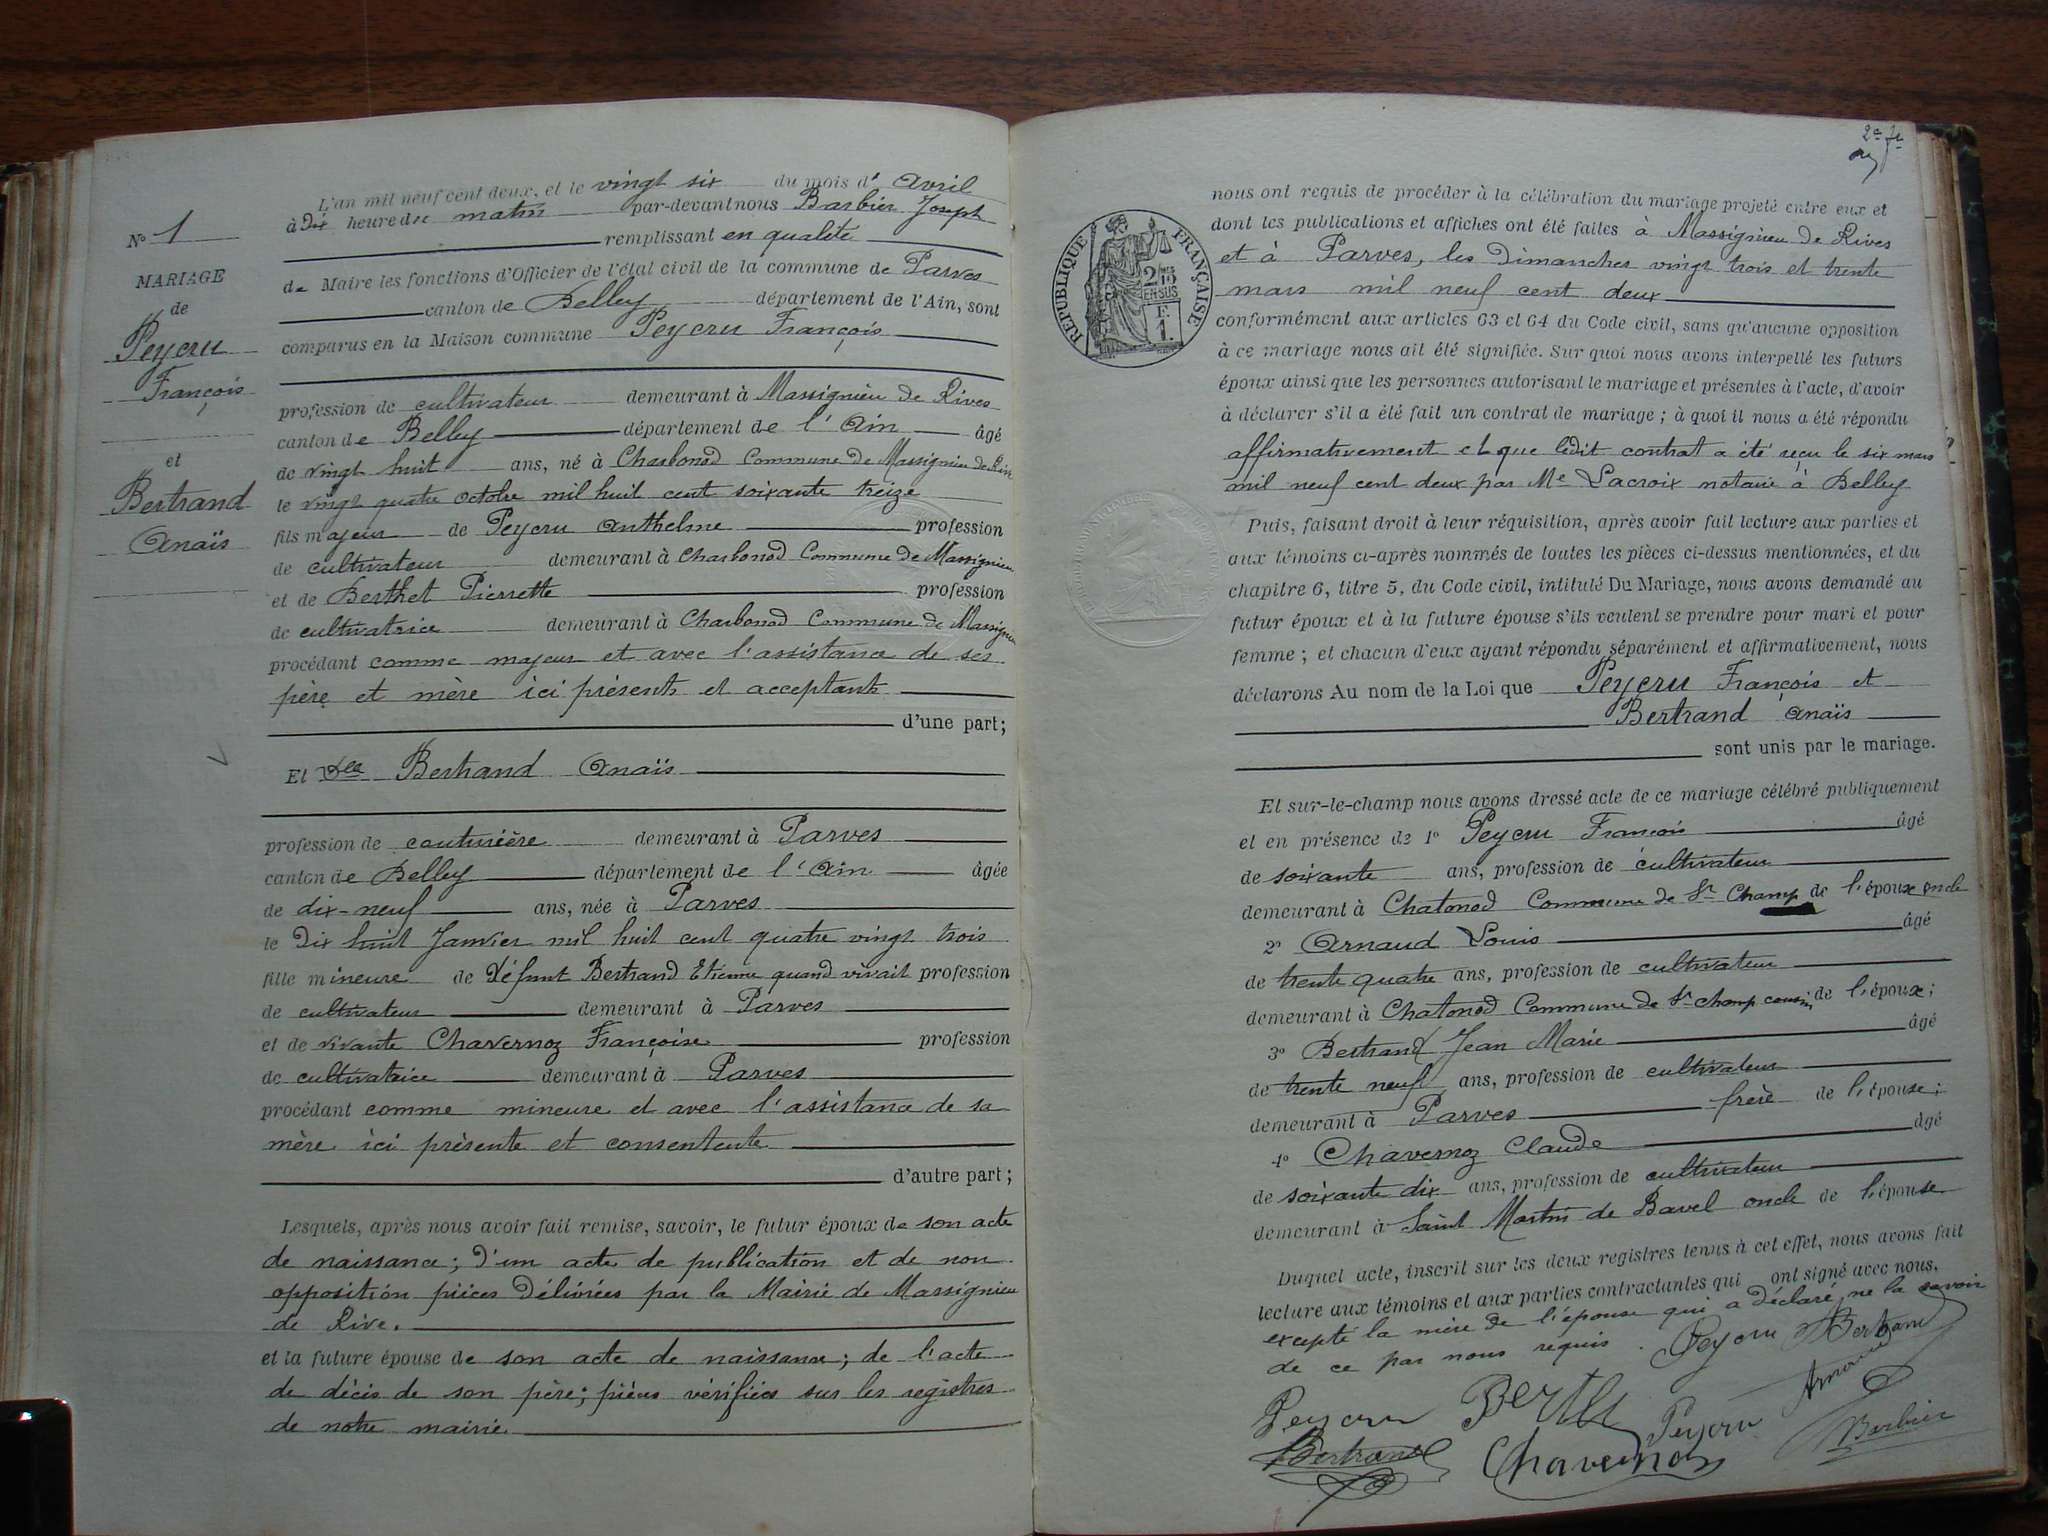 N° 1
MARIAGE
de
Peycru
François
et
Bertrand
Anaïs
L'an mil neuf cent deux, et le vingt six du mois d' Avril
à Dix heure du matin par-devant nous Barbier Joseph
remplissant en qualité
de Maire les fonctions d'Officier de l'état civil de la commune de Parves
canton de Belley département de l'Ain, sont
comparus en la Maison commune Peycru François
profession de cultivateur demeurant à Massignieu de Rives
canton de Belley département de l'Ain âgé
de vingt huit ans, né à Charbonod Commune de Massignieu de Rives
le vingt quatre Octobre mil huit cent soixante treize
fils majeur de Peycru Anthelme profession
de cultivateur demeurant à Charbonod Commune de Massignieu
et de Berthet Pierrette profession
de cultivatrice demeurant à Charbonod Commune de Massignieu
procédant comme majeur et avec l'assistance de ses
père et mère ici présents et acceptants
d'une part;
Et Dlle Bertrand Anaïs
profession de couturière demeurant à Parves
canton de Belley département de l'Ain âgée
de dix-neuf ans, née à Parves
le Dix huit Janvier mil huit cent quatre vingt trois
fille mineure de Défunt Bertrand Etienne quand vivait profession
de cultivateur demeurant à Parves
et de vivante Chavernoz Françoise profession
de cultivatrice demeurant à Parves
procédant comme mineure et avec l'assistance de sa
mère ici présente et consentente
d'autre part;
Lesquels, après nous avoir fait remise, savoir, le futur époux de son acte
de naissance; d'un acte de publication et de non
opposition pièces délivrées par la Mairie de Massignieu
de Rive.
et la future épouse de son acte de naissance; de l'acte
de décès de son père; pièces vérifiées sur les registres
de notre mairie.
2e ft
RÉPUBLIQUE FRANÇAISE
2/10
EN SUS
F.
1.
nous ont requis de procéder à la célébration du mariage projeté entre eux et
dont les publications et affiches ont été faites à Massignieu de Rives
et à Parves, les Dimanches vingt trois et trente
mars mil neuf cent deux
conformément aux articles 63 et 64 du Code civil, sans qu'aucune opposition
à ce mariage nous ait été signifiée. Sur quoi nous avons interpellé les futurs
époux ainsi que les personnes autorisant le mariage et présentes à l'acte, d'avoir
à déclarer s'il a été fait un contrat de mariage; à quoi il nous a été répondu
affirmativement et que ledit contrat a été reçu le six mars
mil neuf cent deux par Me Lacroix notaire à Belley
Puis, faisant droit à leur réquisition, après avoir fait lecture aux parties et
aux témoins ci-après nommés de toutes les pièces ci-dessus mentionnées, et du
chapitre 6, titre 5, du Code civil, intitulé Du Mariage, nous avons demandé au
futur époux et à la future épouse s'ils veulent se prendre pour mari et pour
femme; et chacun d'eux ayant répondu séparément et affirmativement, nous
déclarons Au nom de la Loi que Peycru François et
Bertrand Anaïs
sont unis par le mariage.
Et sur-le-champ nous avons dressé acte de ce mariage célébré publiquement
et en présence de 1° Peycru François âgé
de soixante ans, profession de cultivateur
demeurant à Chatonod Commune de St Champ de l'époux oncle
2° Arnaud Louis âgé
de trente quatre ans, profession de cultivateur
demeurant à Chatonod Commune de St champ cousin de l'époux;
3° Bertrand Jean Marie âgé
de trente neuf ans, profession de cultivateur
demeurant à Parves frère de l'épouse;
4° Chavernoz Claude âgé
de soixante dix ans, profession de cultivateur
demeurant à Saint Martin de Bavel oncle de l'épouse
Duquel acte, inscrit sur les deux registres tenus à cet effet, nous avons fait
lecture aux témoins et aux parties contractantes qui ont signé avec nous.
excepté la mère de l'épouse qui a déclaré ne la savoir
de ce par nous requis. Peycru A Bertrand
Peycru Berthet Peycru Arnaud
Bertrand Chavernoz Barbier